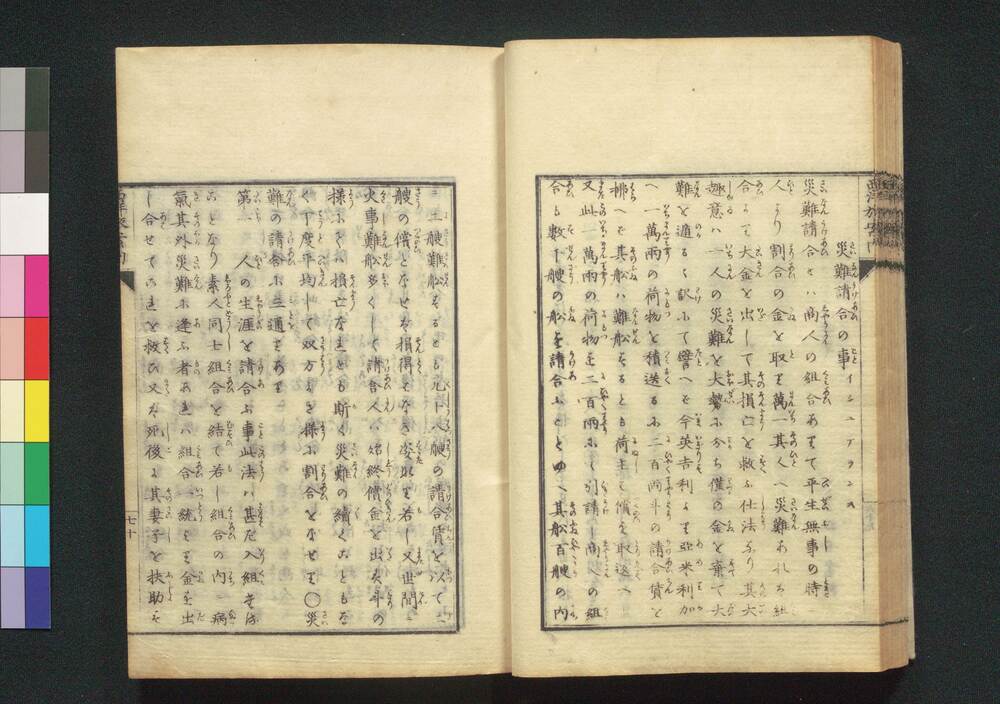 災難請合の事 イシユアランス
災難請合とハ商人の組合ありて平生無事の時
人より割合の金を取り萬一其人へ災難あれバ組
合より大金を出して其損亡を救ふ仕法なり其大
趣意ハ一人の災難を大勢に分ち僅の金を棄て大
難を遁るゝ訳にて譬へバ今英吉利より亜米利加
へ一萬両の荷物を積送るに二百両斗の請合賃を
拂へバ其船ハ難船するとも荷主の償を取返へ
又此一萬両の荷物を二百両にて引請し商人の組
合も数十艘の船を請合ふことゆへ其船百艘の内
二三艘難船するとも九十八艘の請合賃を以て二
艘の償となせバ損得となる姿なり若し又世間に
火事難船多くして請合人ハ始終償金を出す斗の
様にて損亡なれども斯く災難の續くこともな
く十度平均して双方よき様に割合をなせり〇災
難の請合に三通りあり
第一 人の生涯を請合ふ事此法ハ甚だ入組たる
ことなり素人同士組合を結て若し組合の内に病
氣其外災難に逢ふ者あれハ組合一統より金を出
し合せてこれを救ひ又ハ死後に其妻子を扶助す
七十